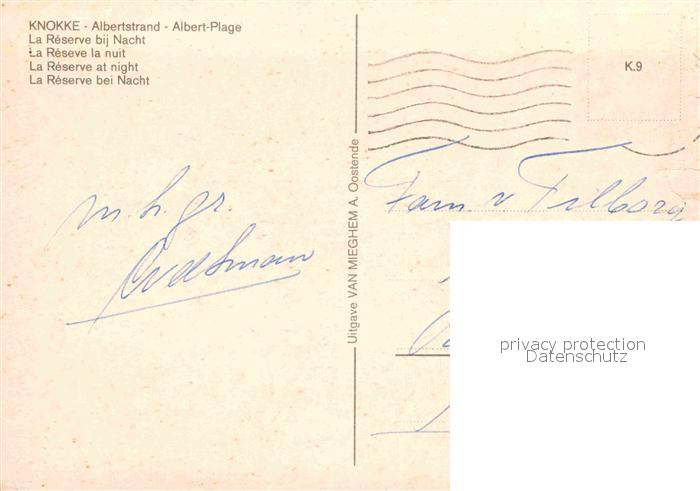 KNOKKE - Albertstrand - Albert-Plage
La Réserve bij Nacht
La Réseve la nuit
La Réserve at night
La Réserve bei Nacht
K.9
Uitgave VAN MIEGHEM A. Oostende
m. h. gr.
Fam. v Tilborg
privacy protection
Datenschutz